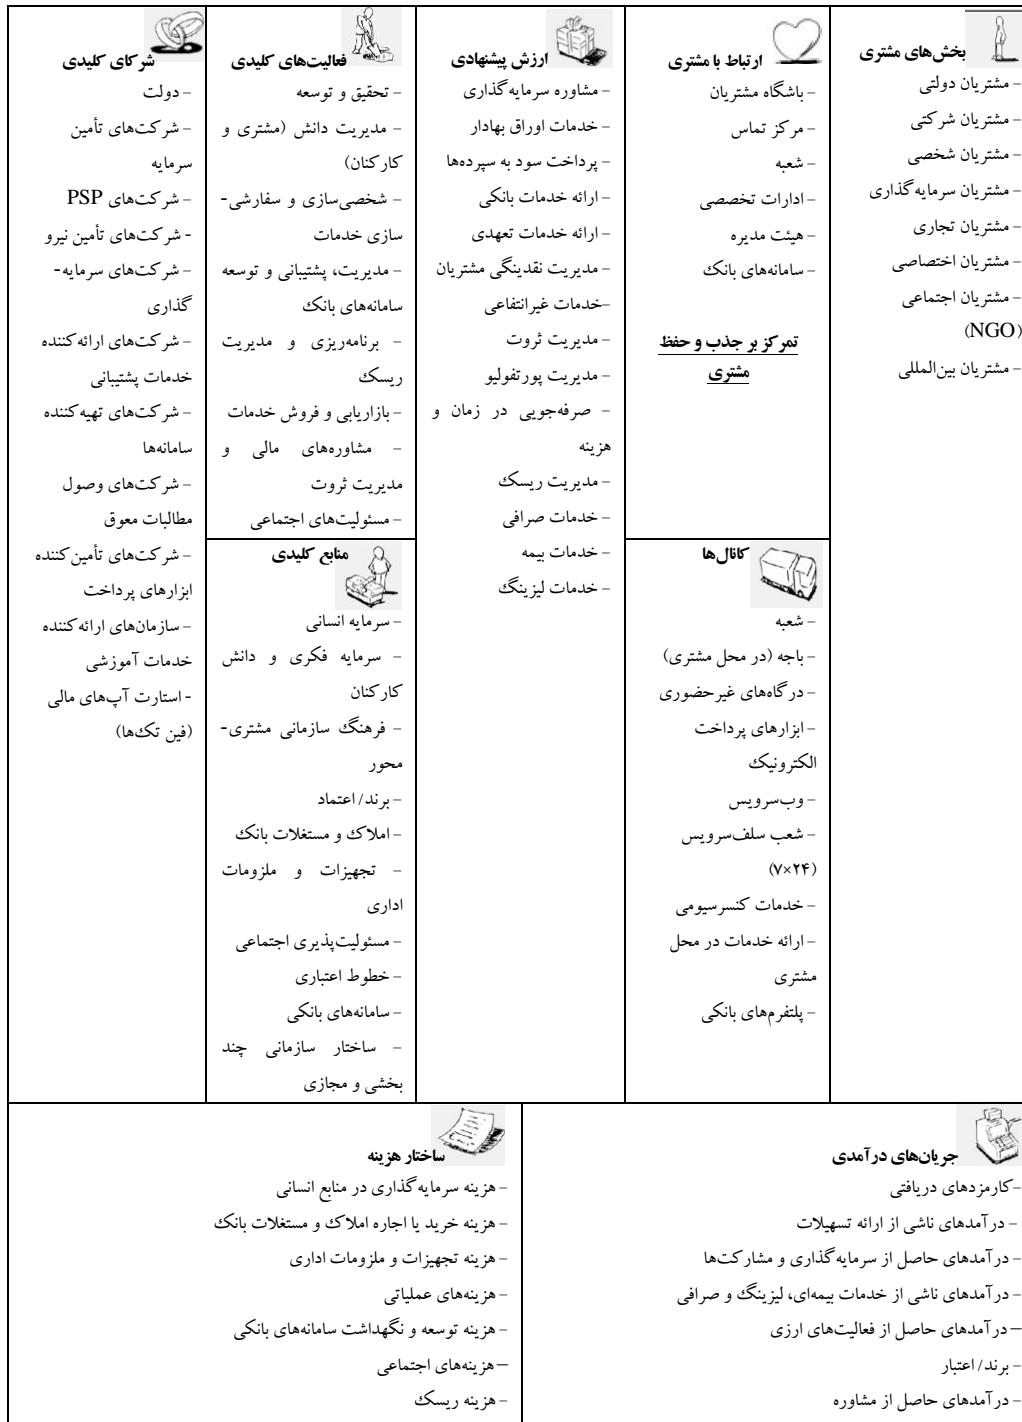 بخش‌های مشتری
- مشتریان دولتی
- مشتریان شرکتی
- مشتریان شخصی
- مشتریان سرمایه گذاری
- مشتریان تجاری
- مشتریان اختصاصی
- مشتریان اجتماعی
(NGO)
- مشتریان بین‌المللی
ارتباط با مشتری
- باشگاه مشتریان
- مرکز تماس
- شعبه
- ادارات تخصصی
- هیئت مدیره
- سامانه‌های بانک
تمرکز بر جذب و حفظ
مشتری
کانال‌ها
- شعبه
- باجه (در محل مشتری)
- درگاه‌های غیرحضوری
- ابزارهای پرداخت
الکترونیک
- وب‌سرویس
- شعب سلف‌سرویس
(۷×۲۴)
- خدمات کنسرسیومی
- ارائه خدمات در محل
مشتری
- پلتفرم‌های بانکی
ارزش پیشنهادی
- مشاوره سرمایه گذاری
- خدمات اوراق بهادار
- پرداخت سود به سپرده‌ها
- ارائه خدمات بانکی
- ارائه خدمات تعهدی
- مدیریت نقدینگی مشتریان
-خدمات غیرانتفاعی
- مدیریت ثروت
- مدیریت پورتفولیو
- صرفه‌جویی در زمان و
هزینه
- مدیریت ریسک
- خدمات صرافی
- خدمات بیمه
- خدمات لیزینگ
فعالیت‌های کلیدی
- تحقیق و توسعه
- مدیریت دانش (مشتری و
کارکنان)
- شخصی‌سازی و سفارشی-
سازی خدمات
- مدیریت، پشتیبانی و توسعه
سامانه‌های بانک
- برنامه‌ریزی و مدیریت
ریسک
- بازاریابی و فروش خدمات
- مشاوره‌های مالی و
مدیریت ثروت
- مسئولیت‌های اجتماعی
منابع کلیدی
- سرمایه انسانی
- سرمایه فکری و دانش
کارکنان
- فرهنگ سازمانی مشتری-
محور
- برند/اعتماد
- املاک و مستغلات بانک
- تجهیزات و ملزومات
اداری
- مسئولیت‌پذیری اجتماعی
- خطوط اعتباری
- سامانه‌های بانکی
- ساختار سازمانی چند
بخشی و مجازی
شرکای کلیدی
- دولت
- شرکت‌های تأمین
سرمایه
- شرکت‌های PSP
- شرکت‌های تأمین نیرو
- شرکت‌های سرمایه-
گذاری
- شرکت‌های ارائه‌کننده
خدمات پشتیبانی
- شرکت‌های تهیه‌کننده
سامانه‌ها
- شرکت‌های وصول
مطالبات معوق
- شرکت‌های تأمین‌کننده
ابزارهای پرداخت
- سازمان‌های ارائه‌کننده
خدمات آموزشی
- استارت آپ‌های مالی
(فین تک‌ها)
جریان‌های درآمدی
-کارمزدهای دریافتی
- درآمدهای ناشی از ارائه تسهیلات
- درآمدهای حاصل از سرمایه گذاری و مشارکت‌ها
- درآمدهای ناشی از خدمات بیمه‌ای، لیزینگ و صرافی
–درآمدهای حاصل از فعالیت‌های ارزی
- برند/اعتبار
- درآمدهای حاصل از مشاوره
ساختار هزینه
- هزینه سرمایه گذاری در منابع انسانی
- هزینه خرید یا اجاره املاک و مستغلات بانک
- هزینه تجهیزات و ملزومات اداری
- هزینه‌های عملیاتی
- هزینه توسعه و نگهداشت سامانه‌های بانکی
–هزینه‌های اجتماعی
- هزینه ریسک